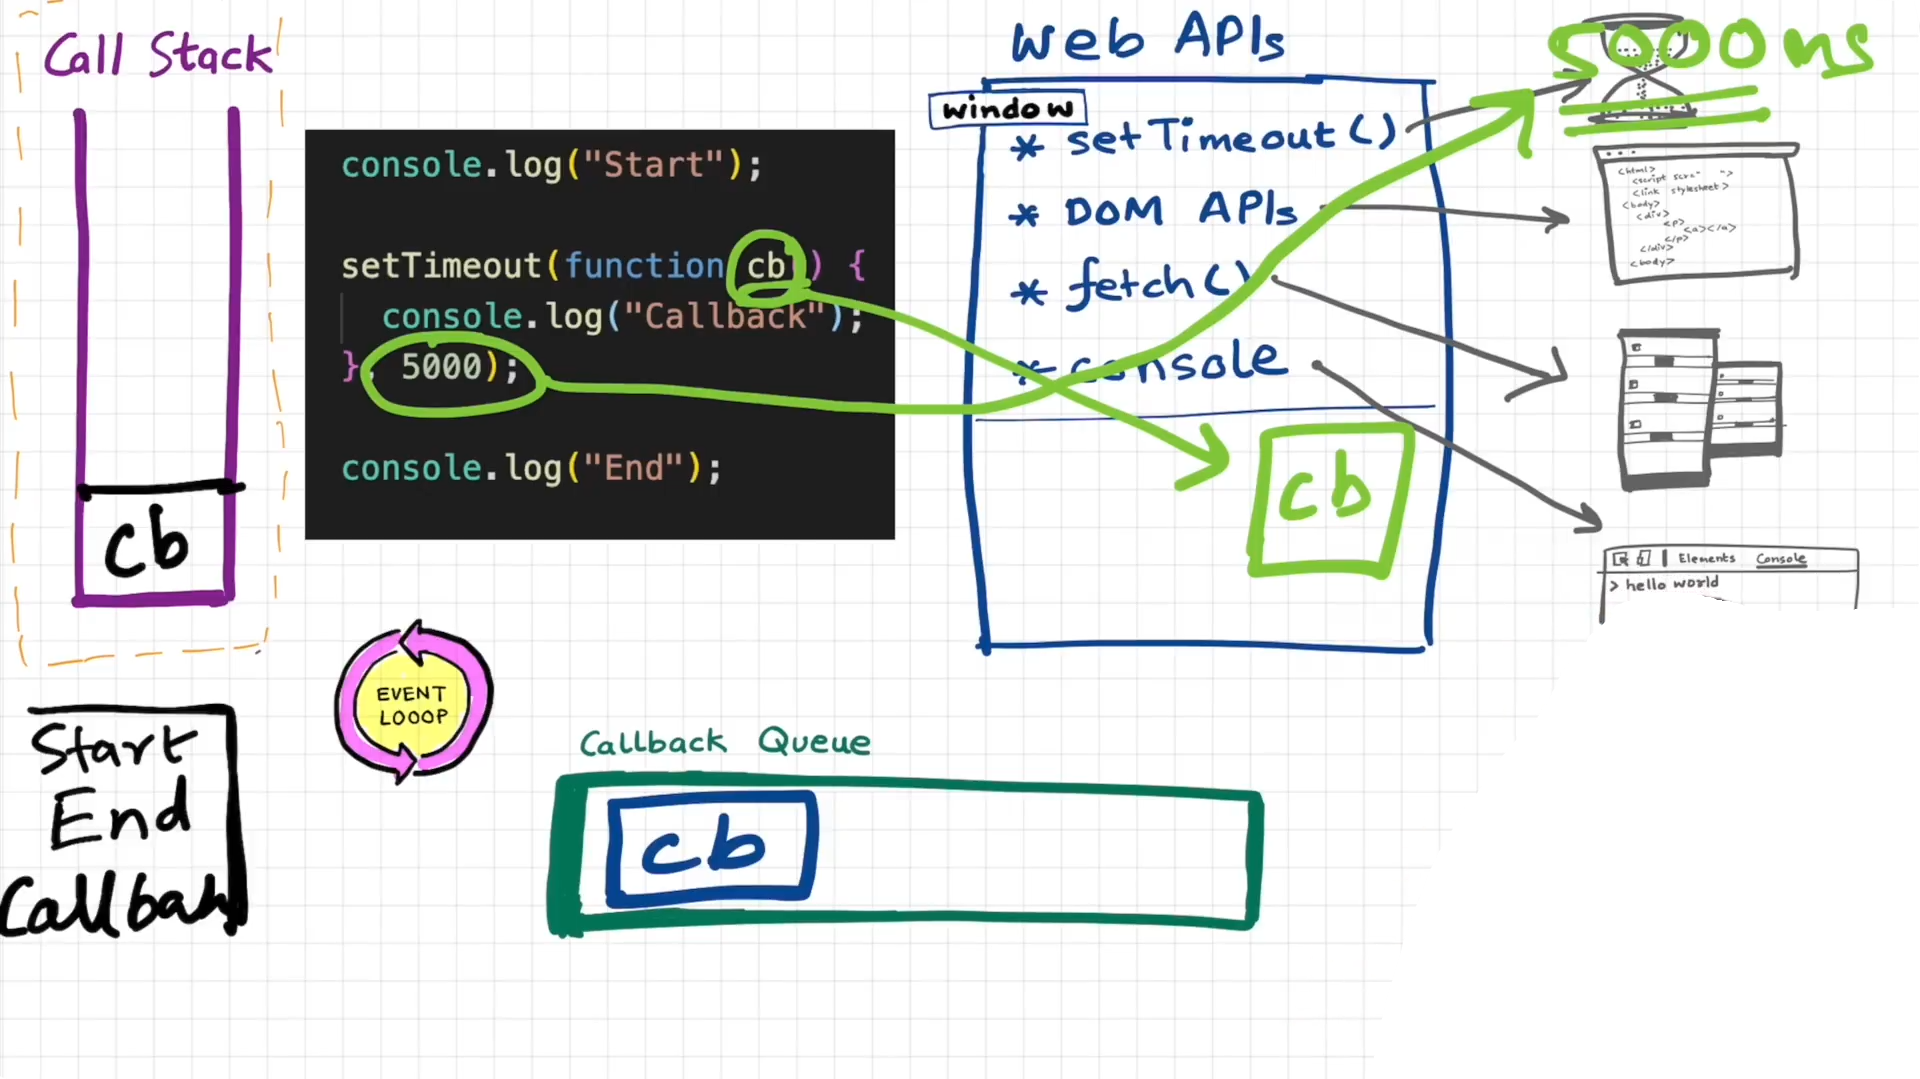 Call Stack
cb
console.log("Start");
setTimeout(function cb() {
console.log("Callback");
}, 5000);
console.log("End");
Web APIs
window
* setTimeout()
* DOM APIs
* fetch()
* console
cb
5000ms
<html>
<link stylesheet>
<body>
<div>
<p>
<a></a>
</p>
</div>
<body>
Elements Console
> hello world
EVENT
LOOOP
Start
End
Callback Queue
cb